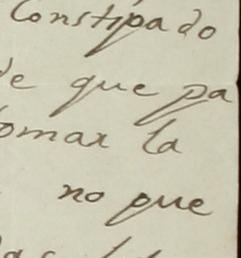 Constipado
de que pa
tomar la
no que